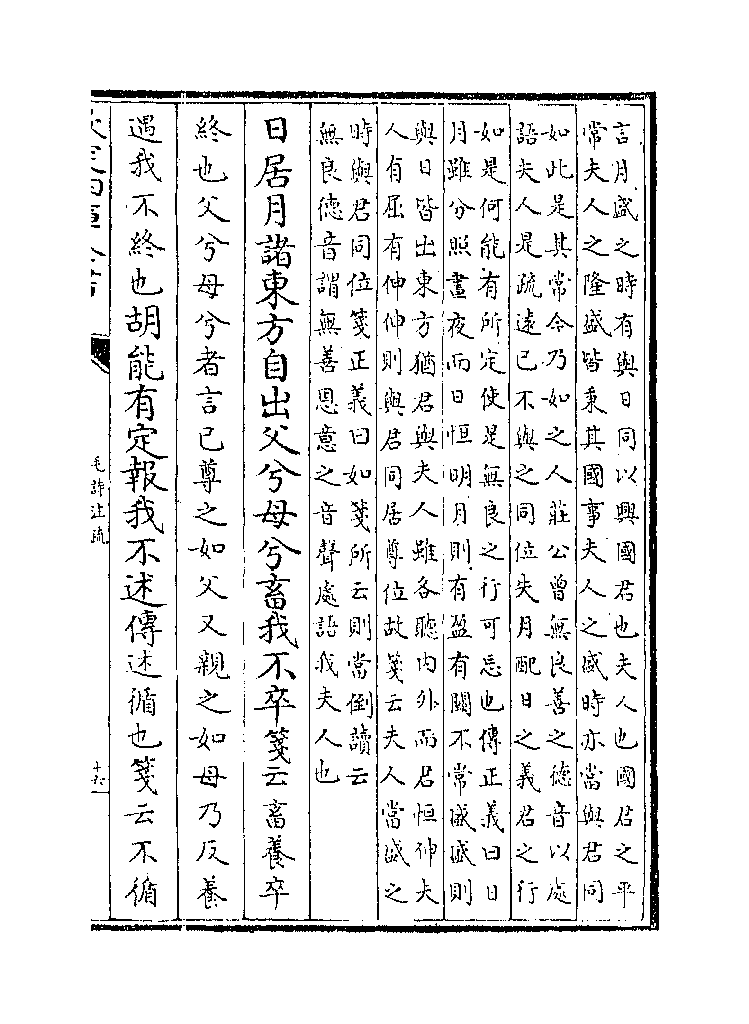 言月盛之時有與日同以興國君也夫人也國君之平
常夫人之隆盛皆秉其國事夫人之盛時亦當與君同
如此是其常今乃如之人莊公曾無良善之德音以處
語夫人是疏遠已不與之同位失月配日之義君之行
如是何能有所定使是無良之行可忘也傳正義曰日
月雖分照晝夜而日恒明月則有盈有闕不常盛盛則
與日皆出東方猶君與夫人雖各聽内外而君恒伸夫
人有屈有伸伸則與君同居尊位故箋云夫人當盛之
時與君同位箋正義曰如箋所云則當倒讀云
無良德音謂無善恩意之音聲處語我夫人也
日居月諸東方自出父兮母兮畜我不卒箋云畜養卒
終也父兮母兮者言已尊之如父又親之如母乃反養
遇我不終也胡能有定報我不述傳述循也箋云不循
毛詩注疏
十六